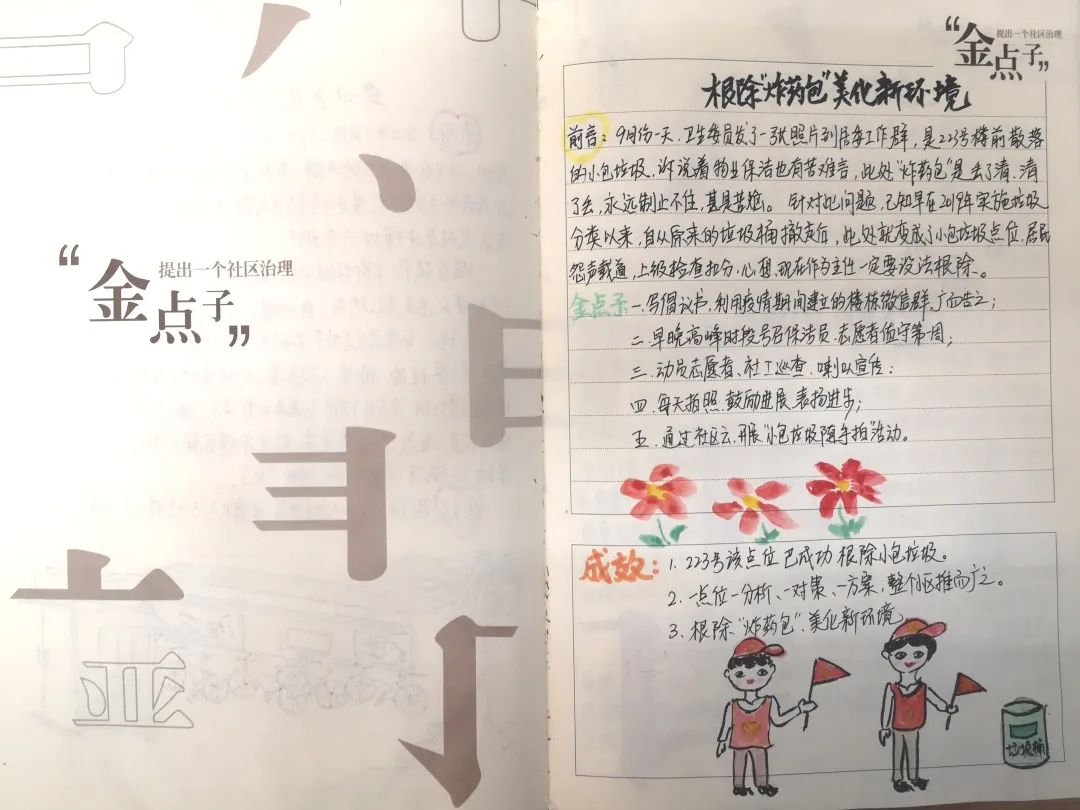 “金点子”
提出一个社区治理
“金点子”
提出一个社区治理
根除“炸药包”美化新环境
前言：9月份一天，卫生委员发了一张照片到居委工作群，是223号楼前散落
的小包垃圾，诉说着物业保洁也有苦难言，此处“炸药包”是丢了清、清
了丢，永远制止不住，甚是苦恼。针对此问题，已知早在2019年实施垃圾
分类以来，自从原来的垃圾桶撤走后，此处就变成了小包垃圾点位，居民
怨声载道，上级检查扣分，心想，现在作为主任一定要设法根除。
金点子 一.写倡议书，利用疫情期间建立的楼栋微信群，广而告之；
二.早晚高峰时段号召保洁员、志愿者值守第一周；
三.动员志愿者、社工巡查，喇叭宣传；
四.每天拍照，鼓励进展，表扬进步；
五.通过社区云，开展“小包垃圾随手拍”活动。
成效：1. 223号该点位已成功根除小包垃圾。
2. 一点位一分析、一对策、一方案，整个小区推而广之。
3. 根除“炸药包”，美化新环境
垃圾桶